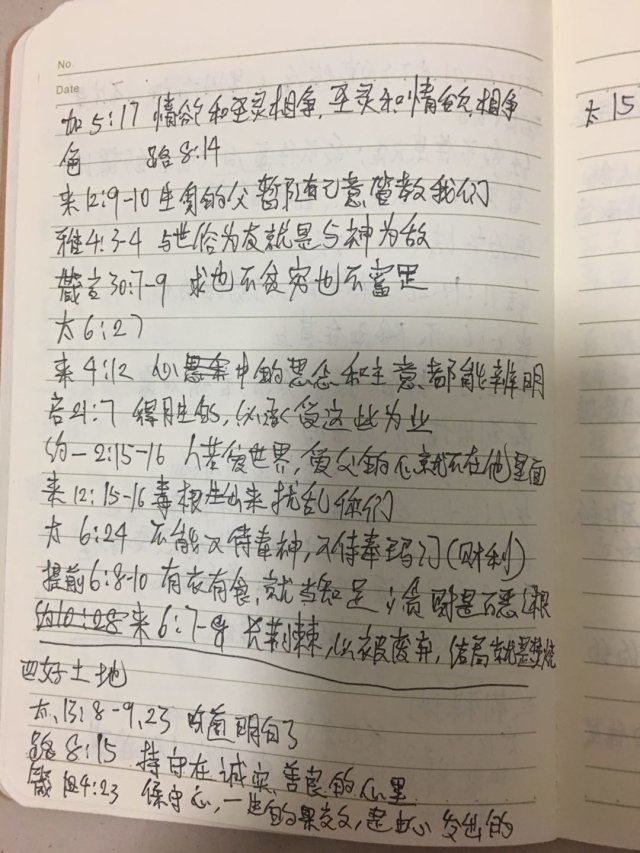 No.
Date
加5:17 情欲和圣灵相争,圣灵和情欲相争
鱼 路8:14
来12:9-10 生身的父暂随己意管教我们
雅4:3-4 与世俗为友就是与神为敌
箴言30:7-9 求也不贫穷也不富足
太6:27
来4:12 心中的思念和主意都能辨明
启21:7 得胜的,必承受这些为业
约一2:15-16 人若爱世界,爱父的心就不在他里面
来12:15-16 毒根生出来扰乱你们
太6:24 不能又侍奉神,又侍奉玛门(财利)
提前6:8-10 有衣有食,就当知足 贪财是万恶之根
约10:28 来6:7-8 长荆棘,必被废弃,结局就是焚烧
四好土地
太13:8-9,23 听道明白了
路8:15 持守在诚实善良的心里
箴4:23 保守心,一生的果效,是由心发出的
太15